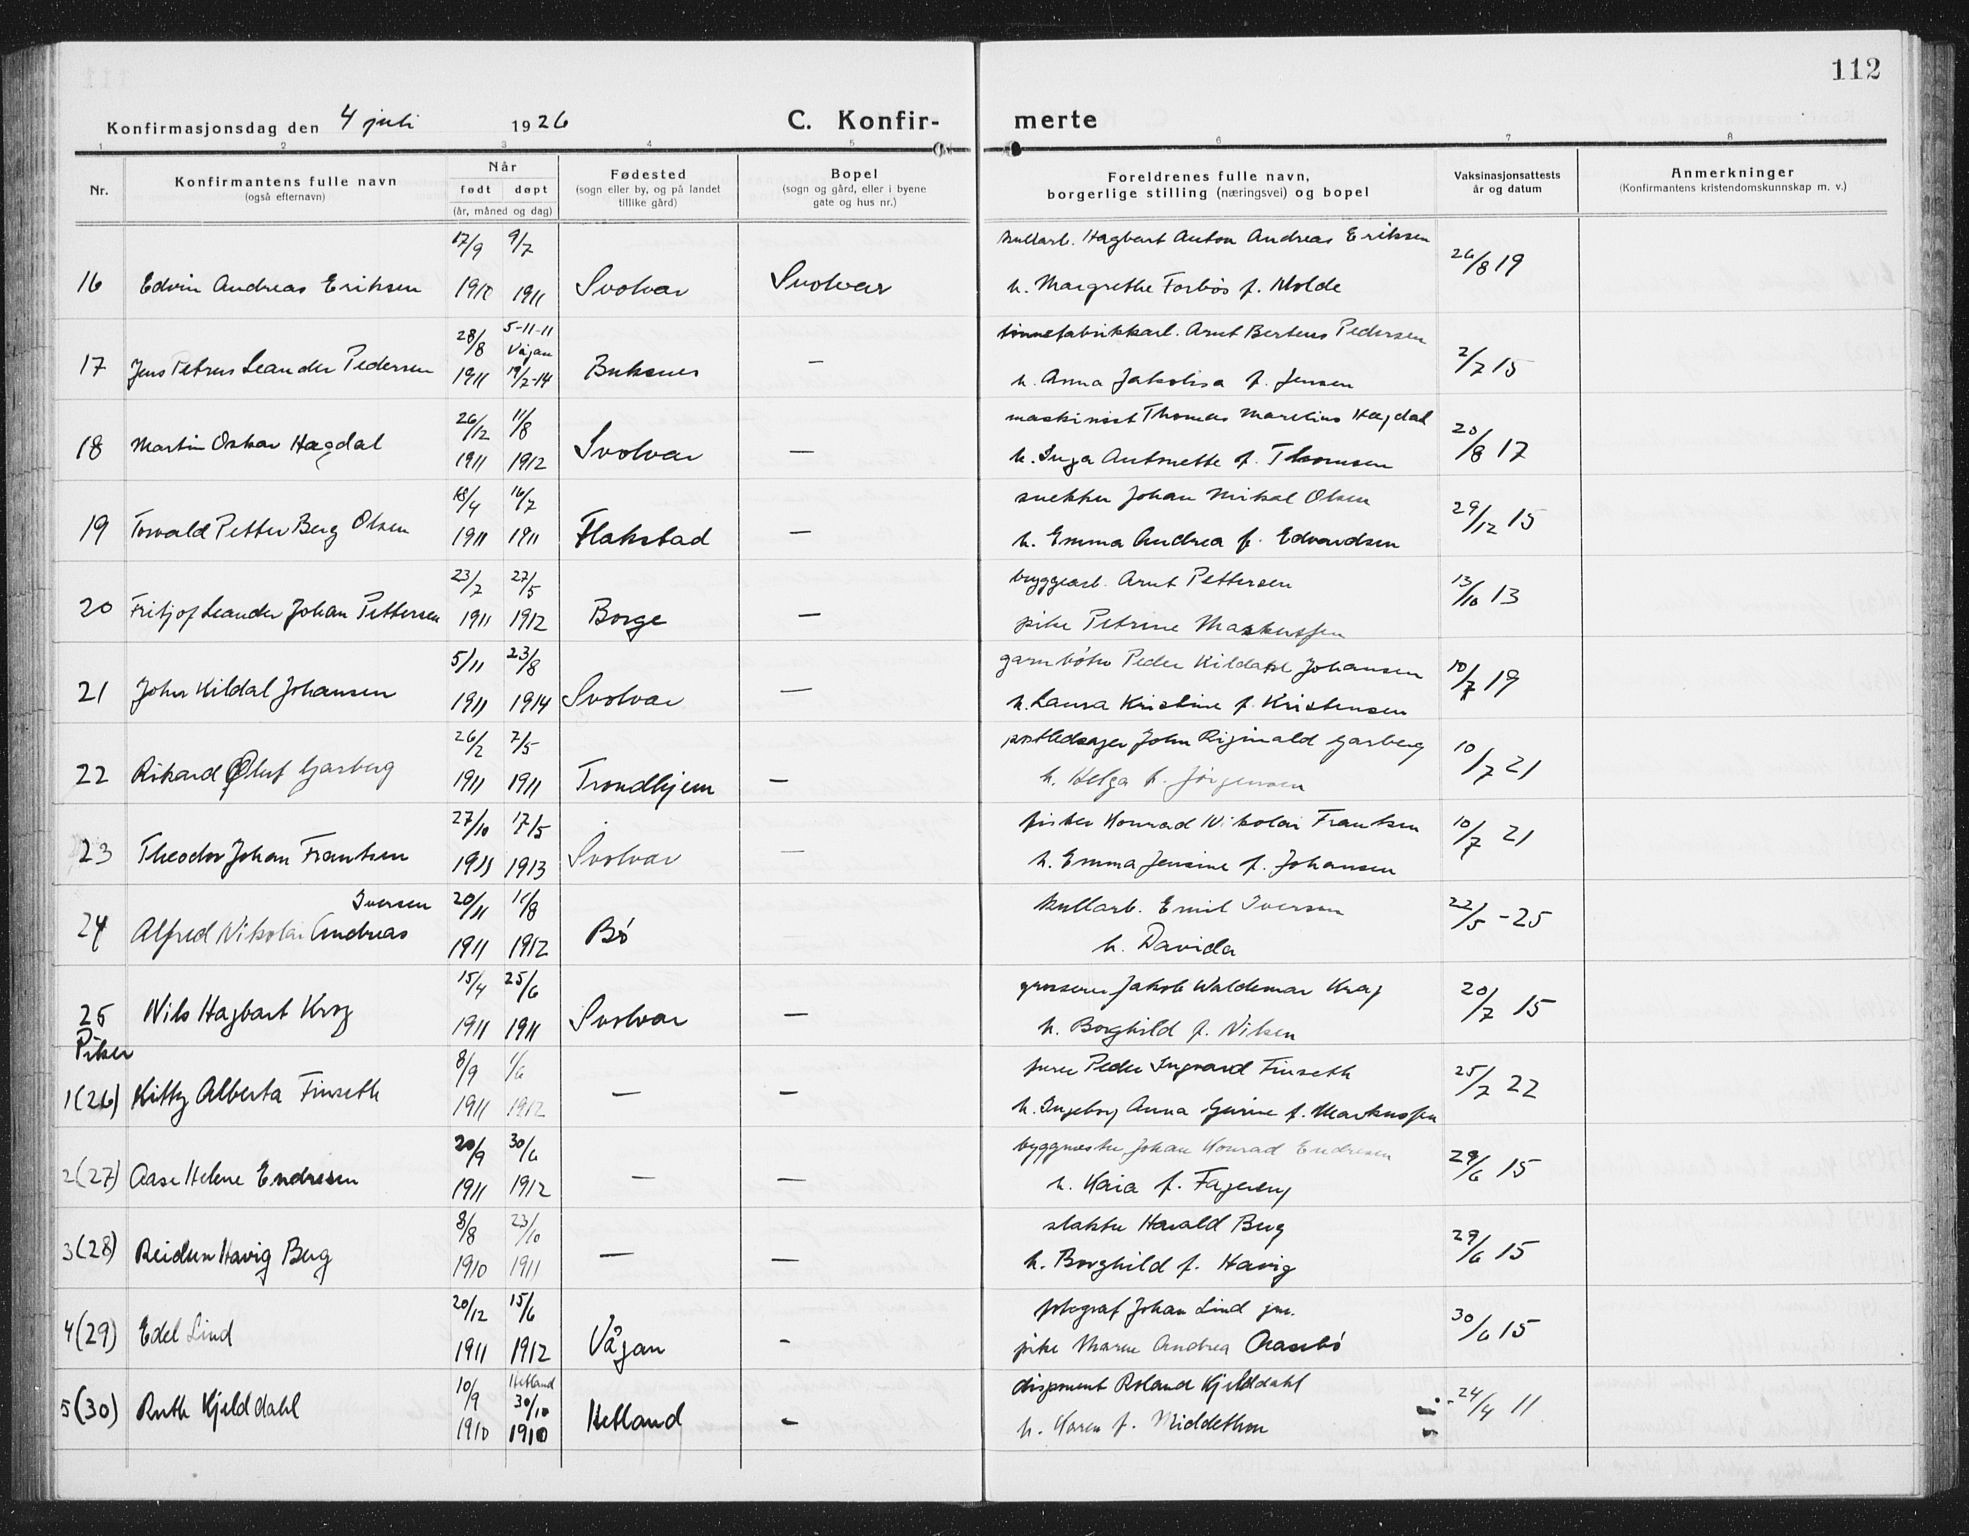 112
Konfirmasjonsdag den 4 juli 1926 C. Konfir- merte
1 2 3 4 5 6 7 8
Nr. Konfirmantens fulle navn (også efternavn) Når født døpt (år, måned og dag) Fødested (sogn eller by, og på landet tillike gård) Bopel (sogn og gård, eller i byene gate og hus nr.) Foreldrenes fulle navn, borgerlige stilling (næringsvei) og bopel Vaksinasjonsattests år og datum Anmerkninger (Konfirmantens kristendomskunnskap m. v.)
17/9 9/7 kullarb. Hagbart Anton Andreas Eriksen
16 Edvin Andreas Eriksen 1910 1911 Svolvær Svolvær h. Margrethe Forbös f. Molde 26/8 19
28/8 5-11-11 Vågan tönnefabrikkarb. Arnt Berteus Pedersen
17 Jens Petrus Leander Pedersen 1911 19/2-14 Buksnes — h. Anna Jakobisa f. Jensen 2/7 15
26/12 11/8 maskinist Thomas Marelius Hagdal
18 Martin Oskar Hagdal 1911 1912 Svolvær — h. Inga Antonette f. Thomsen 20/8 17
18/4 16/7 snekker Johan Mikal Olsen
19 Torvald Petter Berg Olsen 1911 1911 Flakstad — h. Emma Andrea f. Edvardsen 29/12 15
23/7 27/5 byggearb. Arnt Pettersen
20 Fritjof Leander Johan Pettersen 1911 1912 Borge — pike Petrine Markussen 13/10 13
5/11 23/8 garnbøter Peder Kildahl Johansen
21 John Kildal Johansen 1911 1914 Svolvær — h. Laura Kristine f. Kristensen 10/7 19
26/2 7/5 postledsager John Riginald Garberg
22 Rikard Oluf Garberg 1911 1911 Trondhjem — h. Helga f. Jörgensen 10/7 21
27/10 17/5 fisker Konrad Nikolai Frantsen
23 Theodor Johan Frantsen 1911 1913 Svolvær — h. Emma Jensine f. Johansen 10/7 21
Iversen 20/11 11/8 kullarb. Emil Iversen
24 Alfred Nikolai Andreas 1911 1912 Bö h. Davida 22/5 - 25
15/4 25/6 grosserer Jakob Waldemar Krog
25 Nils Hagbart Krog 1911 1911 Svolvær — h. Borghild f. Nilsen 20/7 15
Piker
8/9 1/6 furer Peder Ingvard Finseth
1(26) Kitty Alberta Finseth 1911 1912 — — h. Ingeborg Anna Gurine f. Markussen 25/7 22
20/9 30/6 byggmester Johan Konrad Endresen
2(27) Aase Helene Endresen 1911 1912 — — h. Kaia f. Fagereng 29/6 15
8/8 23/10 slakter Harald Berg
3(28) Reidun Havig Berg 1910 1911 — — h. Borghild f. Havig 29/6 15
20/12 15/6 fotograf Johan Lind jun.
4(29) Edel Lind 1911 1912 Vågan - pike Maren Andrea Aasebö 30/6 15
10/9 Hetland 30/10 disponent Roland Kjelddahl
5(30) Ruth Kjelddahl 1910 1910 Hetland - h. Karen f. Middelthon 24/4 11